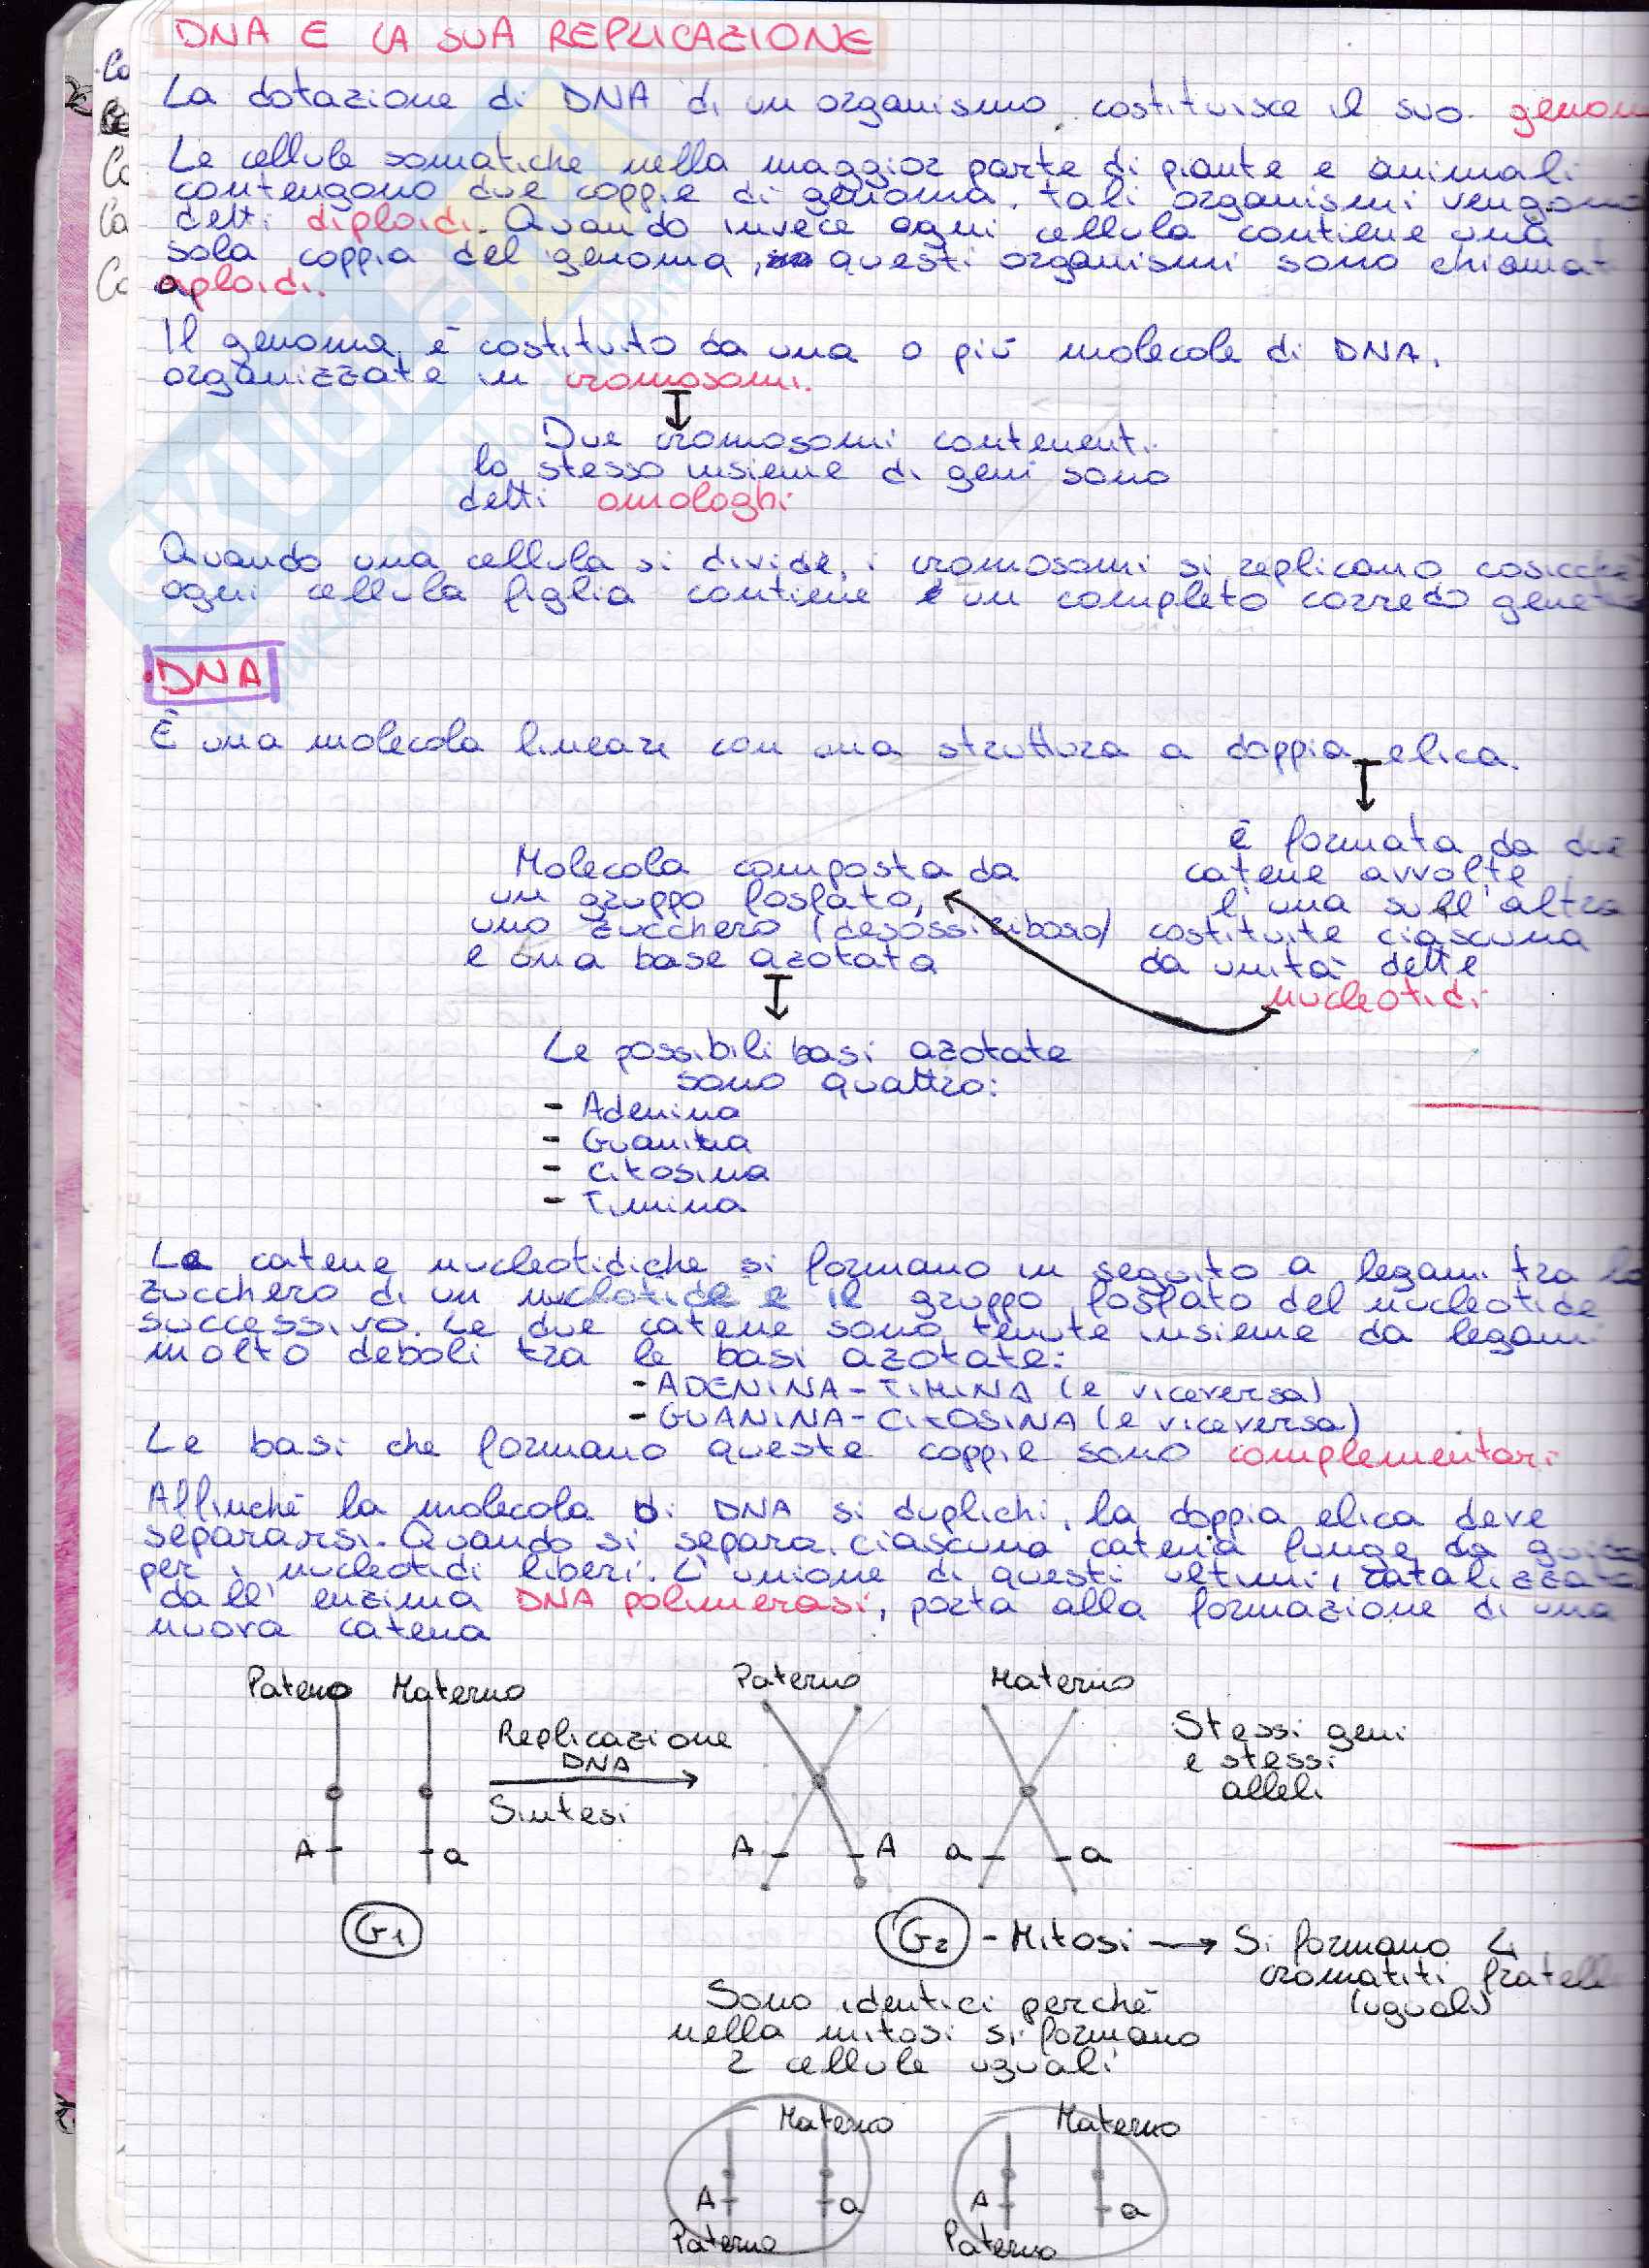 DNA E LA SUA REPLICAZIONE
La dotazione di DNA di un organismo costituisce il suo genom
Le cellule somatiche nella maggior parte di piante e animali
contengono due coppie di genoma. Tali organismi vengono
detti diploidi. Quando invece ogni cellula contiene una
sola coppia del genoma, questi organismi sono chiamat
aploidi.
Il genoma è costituito da una o più molecole di DNA,
organizzate in cromosomi.
Due cromosomi contenenti
lo stesso insieme di geni sono
detti omologhi
Quando una cellula si divide, i cromosomi si replicano cosicchè
ogni cellula figlia contiene un completo corredo genet
DNA
È una molecola lineare con una struttura a doppia elica.
è formata da due
catene avvolte
l'una sull'altra
costituite ciascuna
da unità dette
nucleotidi
Molecola composta da
un gruppo fosfato,
uno zucchero (desossiriboso)
e una base azotata
Le possibili basi azotate
sono quattro:
- Adenina
- Guanina
- Citosina
- Timina
Le catene nucleotidiche si formano in seguito a legami tra lo
zucchero di un nuclotide e il gruppo fosfato del nucleotide
successivo. Le due catene sono tenute insieme da legami
molto deboli tra le basi azotate:
- ADENINA - TIMINA (e viceversa)
- GUANINA - CITOSINA (e viceversa)
Le basi che formano queste coppie sono complementari
Affinchè la molecola di DNA si duplichi, la doppia elica deve
separarsi. Quando si separa, ciascuna catena funge da guida
per i nucleotidi liberi. L'unione di questi ultimi, catalizzata
dall'enzima DNA polimerasi, porta alla formazione di una
nuova catena
Paterno Materno
Replicazione
DNA
Sintesi
A a
G1
Paterno Materno
A A a a
Stessi geni
e stessi
alleli
G2 - Mitosi → Si formano 4
cromatiti fratell
(uguali)
Sono identici perchè
nella mitosi si formano
2 cellule uguali
Materno Materno
A a A a
Paterno Paterno